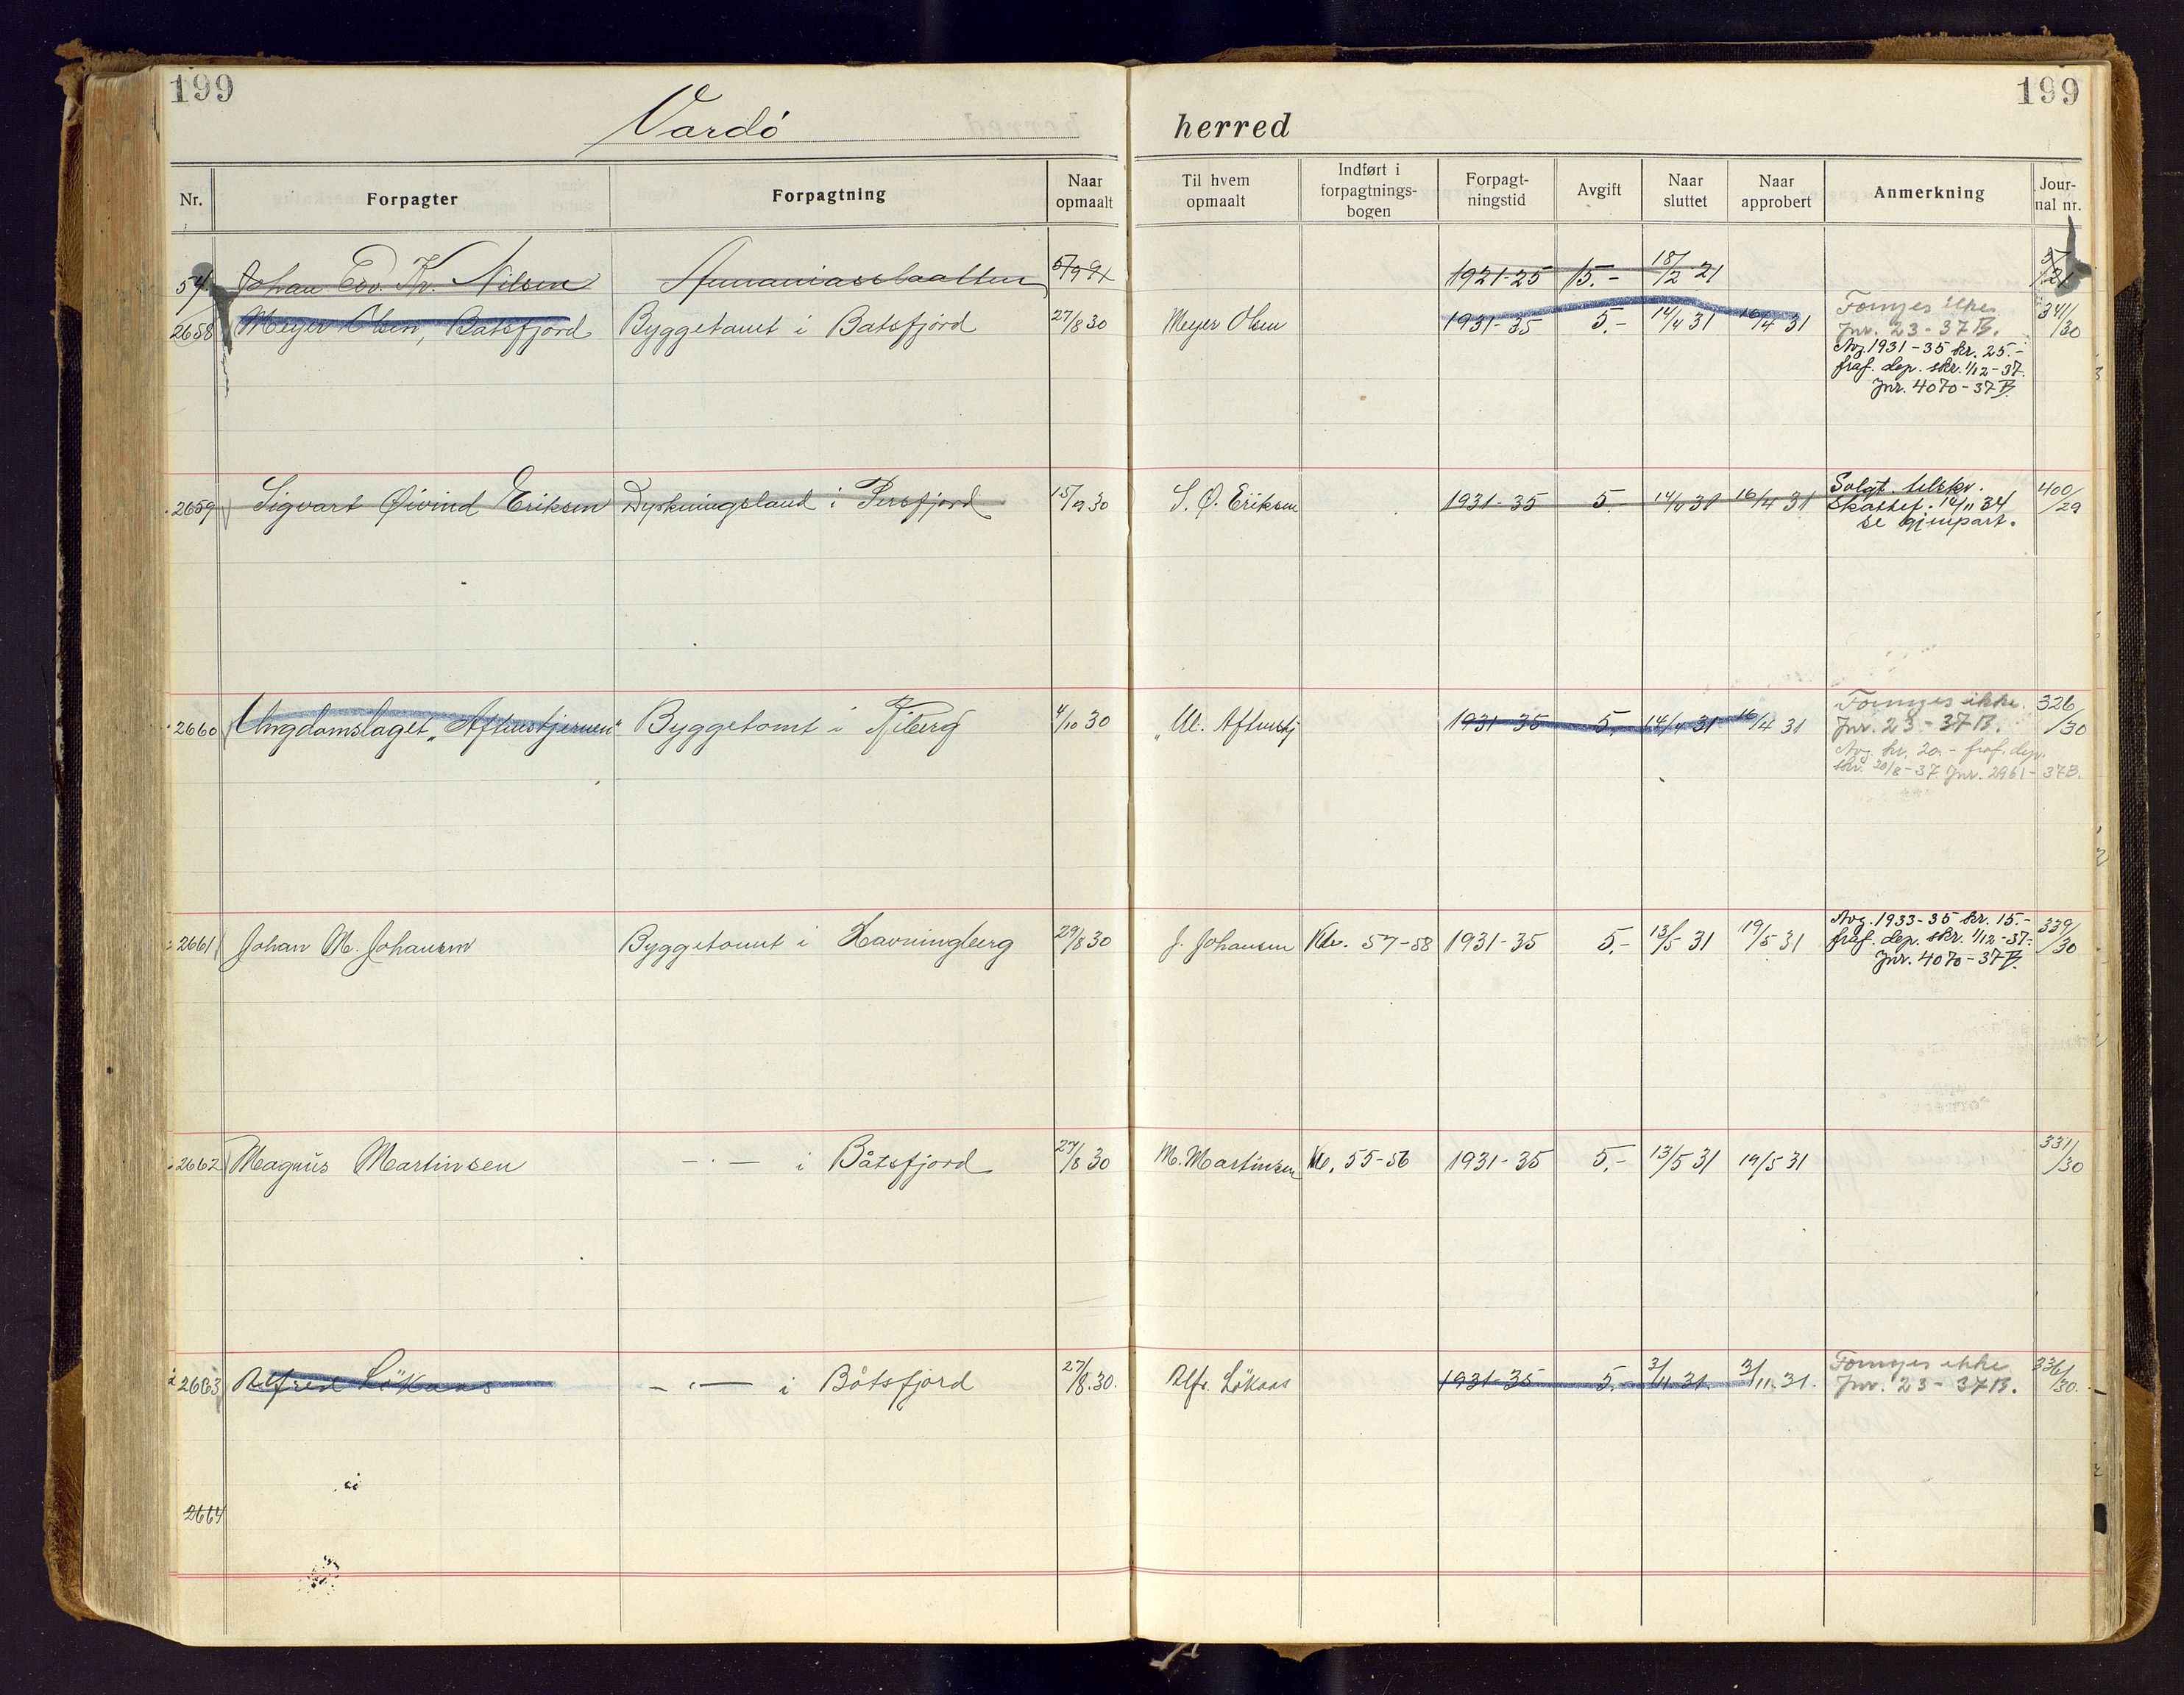 199
199
Vardö herred
Nr. Forpagter Forpagtning Naar opmaalt Til hvem opmaalt Indført i forpagtnings-bogen Forpagt-ningstid Avgift Naar sluttet Naar approbert Anmerkning Jour-nal nr.
54 Johan Edv. Kr. Nilsen 1921-25 15.- 18/2-21
2658 Meyer Olsen, Båtsfjord Byggetomt i Båtsfjord 27/8 30 Meyer Olsen 1931-35 5.- 14/4 31 16/4 31 Fornyes ikke 341/30
Jnr. 23-37B.
Avg. 1931-35 kr. 25.-
fraf. dep. skr. 1/12-37.
Jnr. 4070-37B.
2659 Sigvart Øivind Eriksen Dyrkningsland i Persfjord 15/9 30 S. Ø. Eriksen 1931-35 5.- 14/4 31 16/4 31 Solgt. 400/29
14/11 34
se gjenpart.
2660 Ungdomslaget "Aftenstjernen" Byggetomt i Kiberg 4/10 30 Ul. Aftenstj 1931-35 5.- 14/4 31 16/4 31 Fornyes ikke. 326/30
Jnr. 23-37B.
Avg. kr. 20.- fraf. dep.
skr. 20/8-37. Jnr. 2961-37B.
2661 Johan M. Johansen Byggetomt i Havningberg 29/8 30 J. Johansen Kv. 57-58 1931-35 5.- 13/5 31 19/5 31 Avg. 1933-35 kr. 15.- 339/30
fraf. dep. skr. 1/12-37.
Jnr. 4070-37B.
2662 Magnus Martinsen - " - i Båtsfjord 27/8 30 M. Martinsen Kv. 55-56 1931-35 5.- 13/5 31 19/5 31 331/30
2663 Alfred Lökaas - " - i Båtsfjord 27/8.30. Alfr. Lökaas 1931-35 5.- 3/11.31. 3/11.31. Fornyes ikke 336/30.
Jnr. 23-37B.
2664